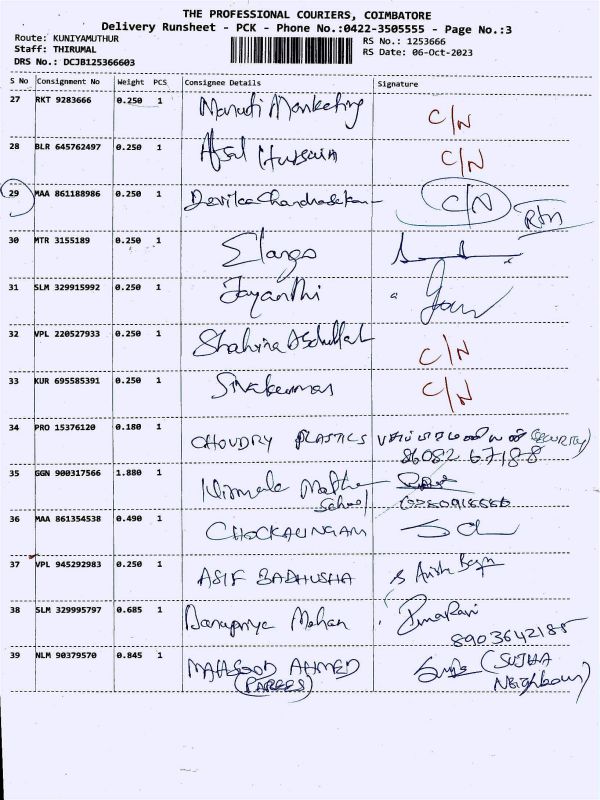 THE PROFESSIONAL COURIERS, COIMBATORE
Delivery Runsheet - PCK - Phone No.:0422-3505555 - Page No.:3
Route: KUNIYAMUTHUR RS No.: 1253666
Staff: THIRUMAL RS Date: 06-Oct-2023
DRS No.: DCJB125366603
S No Consignment No Weight PCS Consignee Details Signature
27 RKT 9283666 0.250 1 Maruti Marketing C/N
28 BLR 645762497 0.250 1 Afsal Hussain C/N
29 MAA 861188986 0.250 1 Devika Chandrasekan C/N Rtn
30 MTR 3155189 0.250 1 Elango
31 SLM 329915992 0.250 1 Jayanthi
32 VPL 220527933 0.250 1 Shahina Abdullah C/N
33 KUR 695585391 0.250 1 Sivakumar C/N
34 PRO 15376120 0.180 1 CHOUDRY PLASTICS (SECURITY)
86082 67188
35 GGN 900317566 1.880 1 Nirmala Matha
School
36 MAA 861354538 0.490 1 CHOCKALINGAM
37 VPL 945292983 0.250 1 ASIF BADHUSHA
38 SLM 329995797 0.685 1 Danupriya Mohan
8903642185
39 NLM 90379570 0.845 1 MAHSOOD AHMED (SUJHA
(PAREES) NEIGHbour)